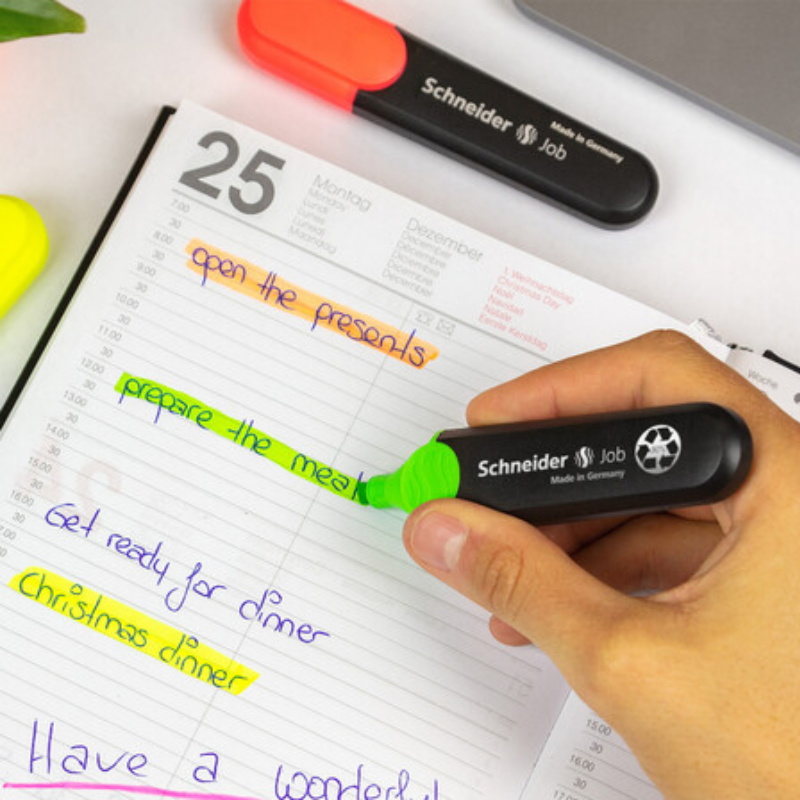 Schneider Job
Made in Germany
25
Montag
Monday
Lundi
Lunes
Lunedì
Maandag
Dezember
December
Décembre
Diciembre
Dicembre
December
1. Weihnachtstag
Christmas Day
Noël
Navidad
Natale
Eerste Kerstdag
Woche
7.00
30
8.00
30
9.00
30
10.00
30
11.00
30
12.00
30
13.00
30
14.00
30
15.00
30
16.00
30
open the presents
prepare the meal
Get ready for dinner
Christmas dinner
Have a wonderful
Schneider Job
Made in Germany
15.00
30
16.00
30
17.00